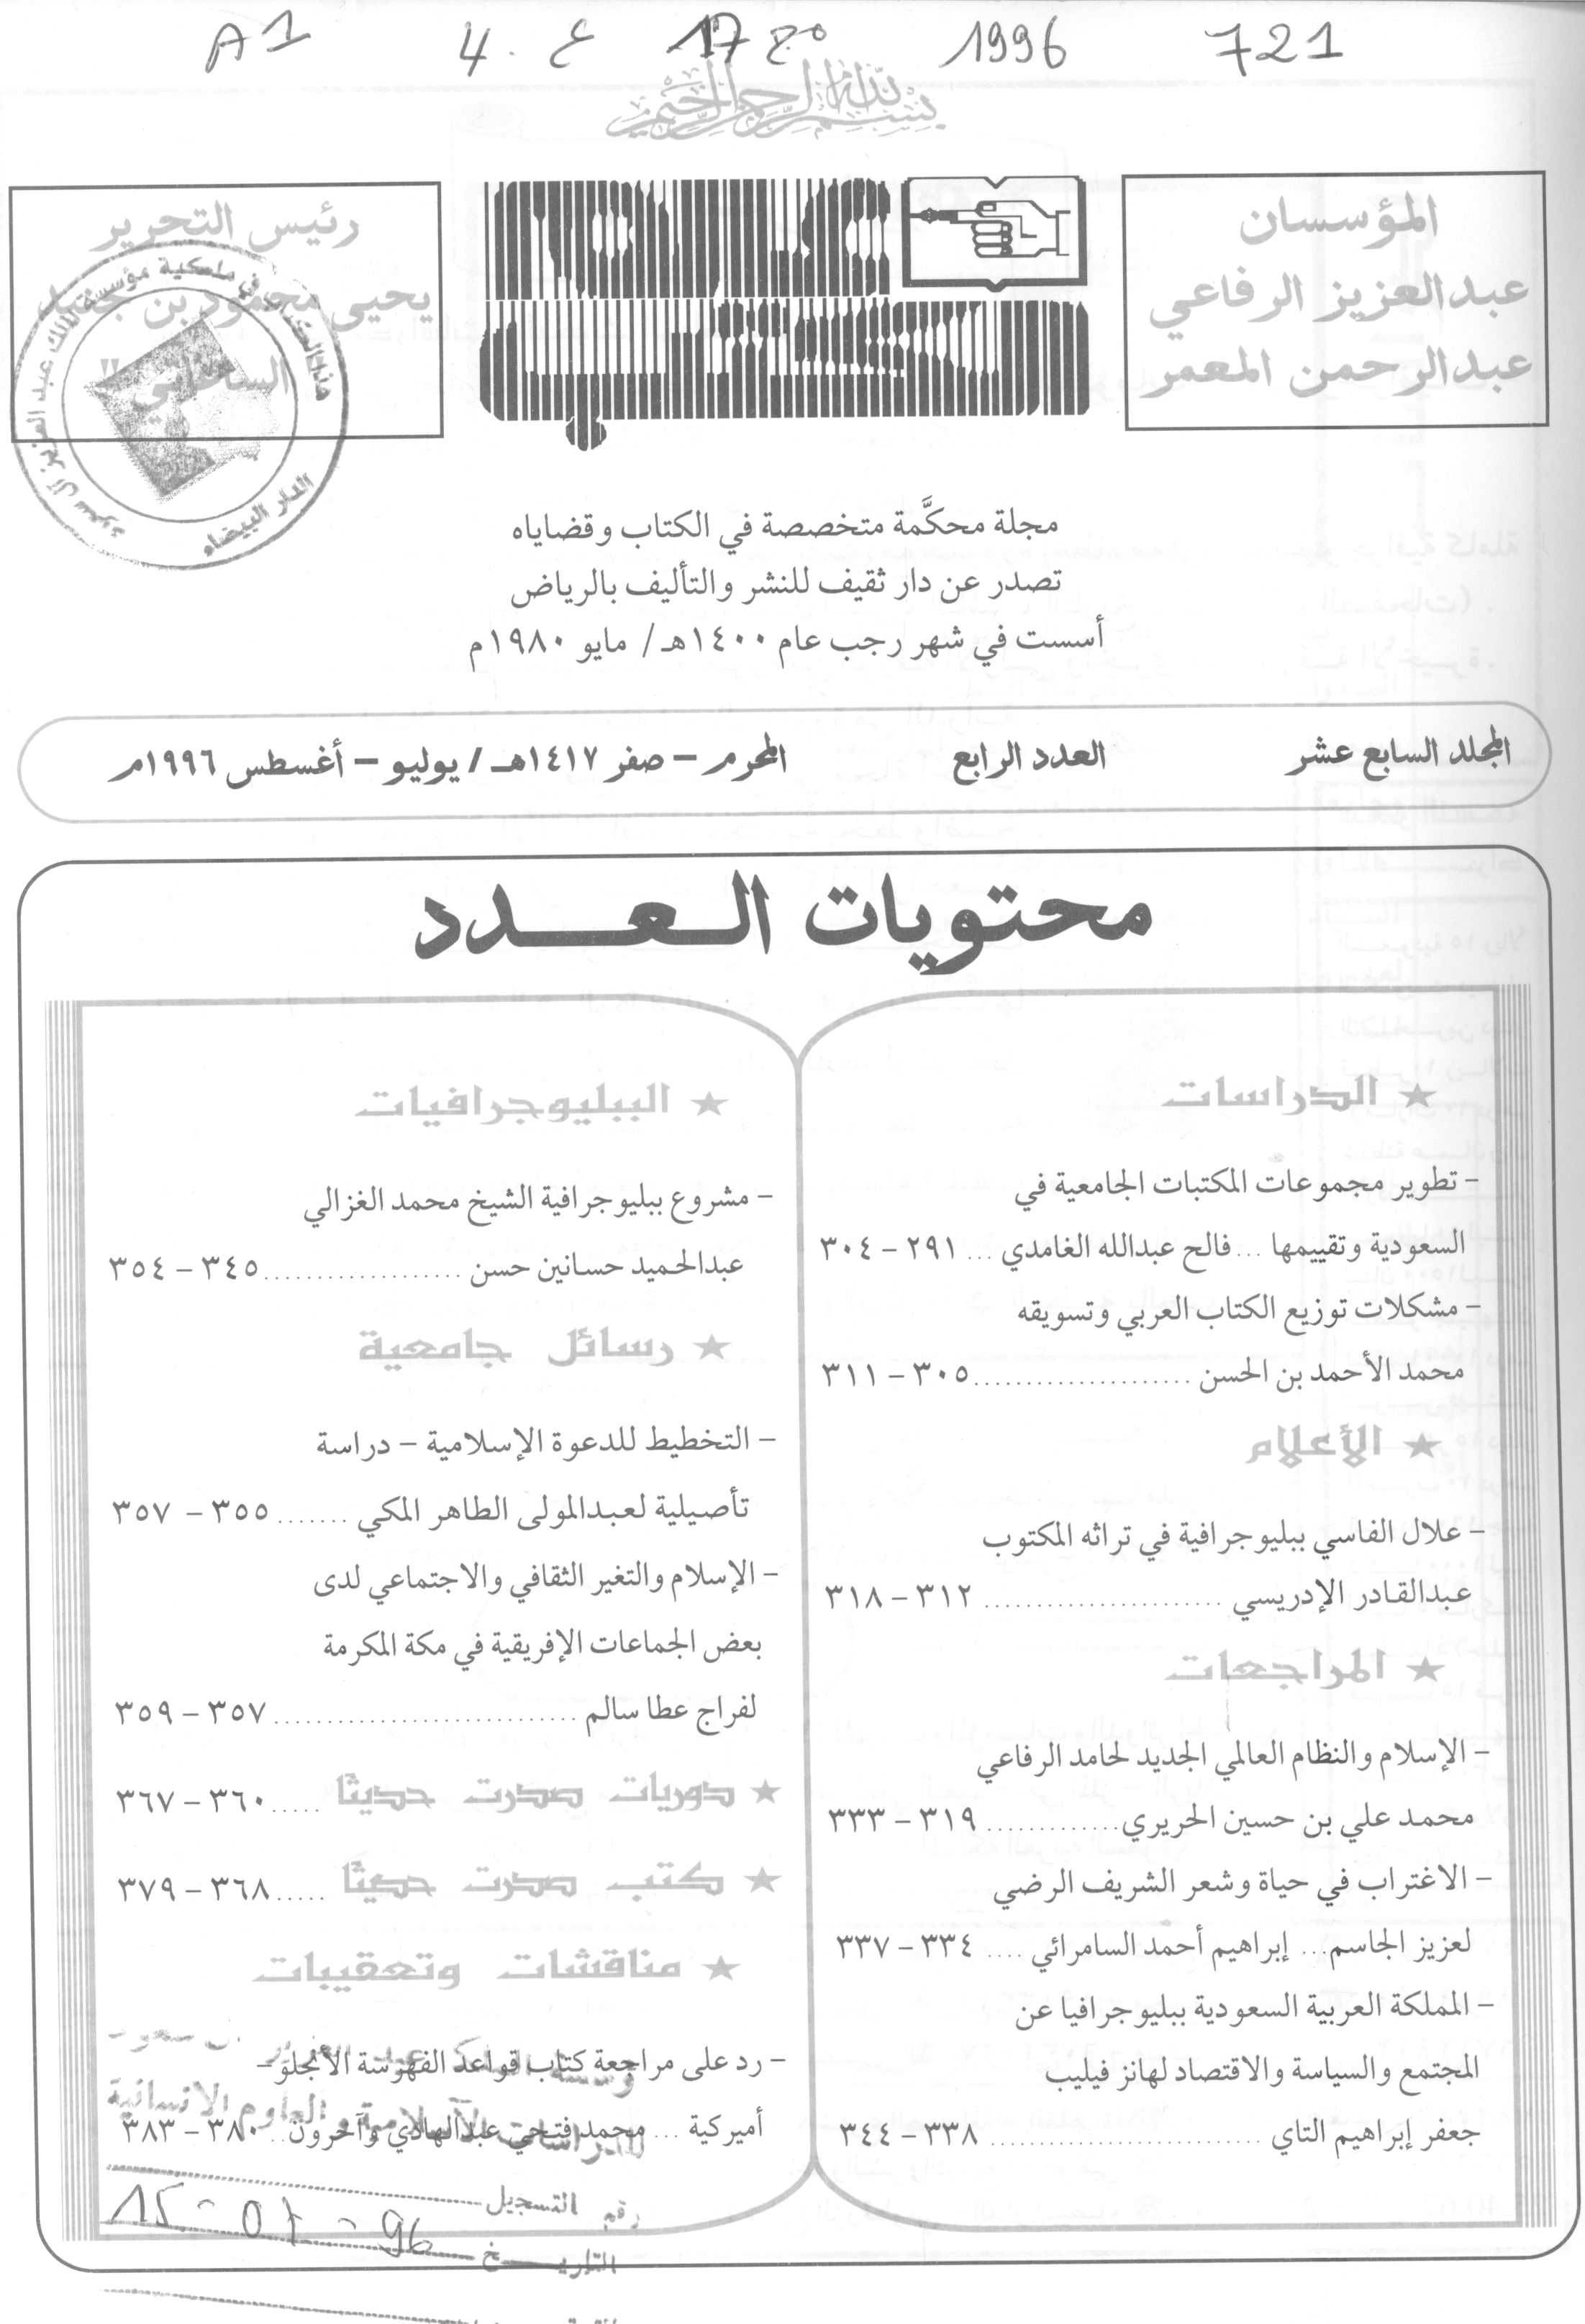 721 1996 مج 17 ع 4. A1
بسم الله الرحمن الرحيم
المؤسسان
عبدالعزيز الرفاعي
عبدالرحمن المعمر
عالم
الكتب
رئيس التحرير
يحيى محمود بن جنيد
"الساعاتي"
الدار البيضاء
مجلة محكَّمة متخصصة في الكتاب وقضاياه
تصدر عن دار ثقيف للنشر والتأليف بالرياض
أسست في شهر رجب عام ١٤٠٠هـ/ مايو ١٩٨٠م
المجلد السابع عشر العدد الرابع المحرم – صفر ١٤١٧هـ / يوليو – أغسطس ١٩٩٦م
محتويات العـدد
★ الدراسات
– تطوير مجموعات المكتبات الجامعية في
السعودية وتقييمها ... فالح عبدالله الغامدي ... ٢٩١ – ٣٠٤
– مشكلات توزيع الكتاب العربي وتسويقه
محمد الأحمد بن الحسن ..................... ٣٠٥ – ٣١١
★ الأعلام
– علال الفاسي ببليوجرافية في تراثه المكتوب
عبدالقادر الإدريسي ....................... ٣١٢ – ٣١٨
★ المراجعات
– الإسلام والنظام العالمي الجديد لحامد الرفاعي
محمد علي بن حسين الحريري ............. ٣١٩ – ٣٣٣
– الاغتراب في حياة وشعر الشريف الرضي
لعزيز الجاسم ... إبراهيم أحمد السامرائي .... ٣٣٤ – ٣٣٧
– المملكة العربية السعودية ببليوجرافيا عن
المجتمع والسياسة والاقتصاد لهانز فيليب
جعفر إبراهيم التاي .......................... ٣٣٨ – ٣٤٤
★ الببليوجرافيات
– مشروع ببليوجرافية الشيخ محمد الغزالي
عبدالحميد حسانين حسن ................... ٣٤٥ – ٣٥٤
★ رسائل جامعية
– التخطيط للدعوة الإسلامية – دراسة
تأصيلية لعبدالمولى الطاهر المكي ....... ٣٥٥ – ٣٥٧
– الإسلام والتغير الثقافي والاجتماعي لدى
بعض الجماعات الإفريقية في مكة المكرمة
لفراج عطا سالم ............................. ٣٥٧ – ٣٥٩
★ دوريات صدرت حديثًا ..... ٣٦٠ – ٣٦٧
★ كتب صدرت حديثًا ..... ٣٦٨ – ٣٧٩
★ مناقشات وتعقيبات
– رد على مراجعة كتاب قواعد الفهرسة الأنجلو –
أميركية ... محمد فتحي عبدالهادي وآخرون .. ٣٨٠ – ٣٨٣
رقم التسجيل
التاريـــخ 15 - 01 - 96